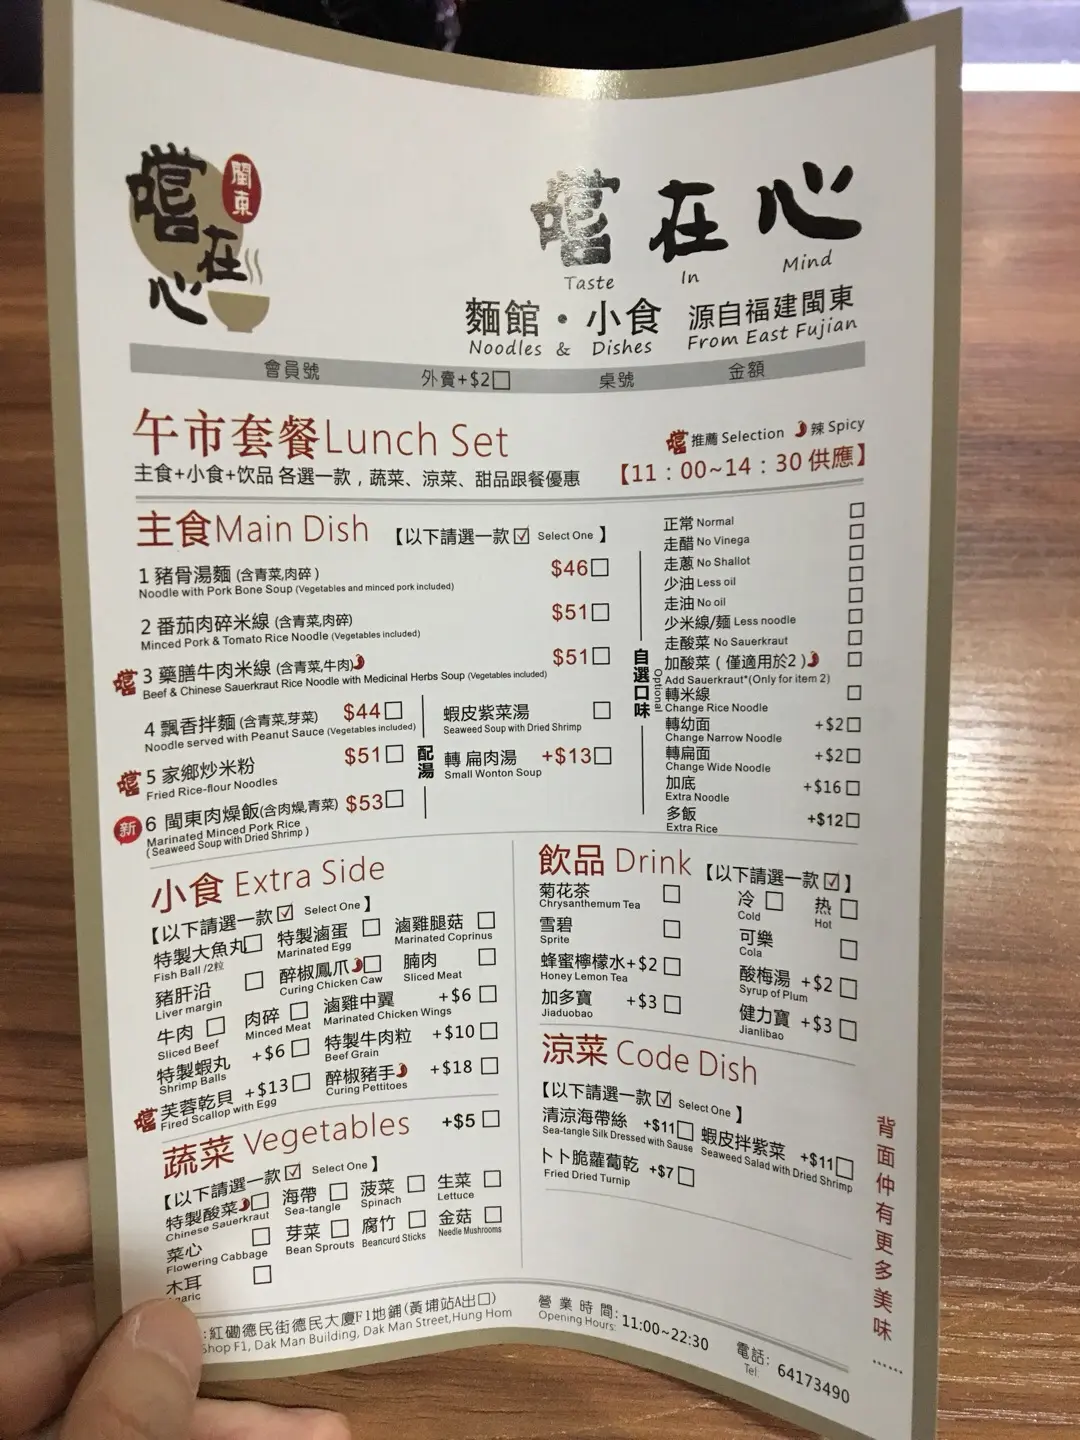 閩東
嚐在心
嚐在心
Taste In Mind
麵館・小食 源自福建閩東
Noodles & Dishes From East Fujian
會員號 外賣+$2□ 桌號 金額
午市套餐Lunch Set
嚐 推薦 Selection 辣 Spicy
主食+小食+饮品 各選一款，蔬菜、涼菜、甜品跟餐優惠
【11：00~14：30 供應】
主食Main Dish 【以下請選一款☑ Select One 】
1 豬骨湯麵 (含青菜,肉碎 ) $46□
Noodle with Pork Bone Soup (Vegetables and minced pork included)
2 番茄肉碎米線 (含青菜,肉碎) $51□
Minced Pork & Tomato Rice Noodle (Vegetables included)
嚐 3 藥膳牛肉米線 (含青菜,牛肉) $51□
Beef & Chinese Sauerkraut Rice Noodle with Medicinal Herbs Soup (Vegetables included)
4 飄香拌麵 (含青菜,芽菜) $44□
Noodle served with Peanut Sauce (Vegetables included)
嚐 5 家鄉炒米粉 $51□
Fried Rice-flour Noodles
新 6 閩東肉燥飯(含肉燥,青菜) $53□
Marinated Minced Pork Rice
( Seaweed Soup with Dried Shrimp )
配湯
蝦皮紫菜湯 □
Seaweed Soup with Dried Shrimp
轉 扁肉湯 +$13□
Small Wonton Soup
自選口味 Optional
正常 Normal □
走醋 No Vinega □
走蔥 No Shallot □
少油 Less oil □
走油 No oil □
少米線/麵 Less noodle □
走酸菜 No Sauerkraut □
加酸菜 ( 僅適用於2 ) □
Add Sauerkraut*(Only for item 2)
轉米線 □
Change Rice Noodle
轉幼面 +$2□
Change Narrow Noodle
轉扁面 +$2□
Change Wide Noodle
加底 +$16□
Extra Noodle
多飯 +$12□
Extra Rice
小食 Extra Side
【以下請選一款☑ Select One 】
特製大魚丸□ 特製滷蛋 □ 滷雞腿菇 □
Fish Ball /2粒 Marinated Egg Marinated Coprinus
豬肝沿 □ 醉椒鳳爪□ 腩肉 □
Liver margin Curing Chicken Caw Sliced Meat
牛肉 □ 肉碎 □ 滷雞中翼 +$6 □
Sliced Beef Minced Meat Marinated Chicken Wings
特製蝦丸 +$6 □ 特製牛肉粒 +$10 □
Shrimp Balls Beef Grain
嚐 芙蓉乾貝 +$13□ 醉椒豬手 +$18 □
Fired Scallop with Egg Curing Pettitoes
蔬菜 Vegetables +$5 □
【以下請選一款☑ Select One 】
特製酸菜□ 海帶 □ 菠菜 □ 生菜 □
Chinese Sauerkraut Sea-tangle Spinach Lettuce
菜心 □ 芽菜 □ 腐竹 □ 金菇 □
Flowering Cabbage Bean Sprouts Beancurd Sticks Needle Mushrooms
木耳 □
飲品 Drink 【以下請選一款☑】
菊花茶 □ 冷 □ 热 □
Chrysanthemum Tea Cold Hot
雪碧 □ 可樂 □
Sprite Cola
蜂蜜檸檬水+$2 □ 酸梅湯 +$2 □
Honey Lemon Tea Syrup of Plum
加多寶 +$3 □ 健力寶 +$3 □
Jiaduobao Jianlibao
涼菜 Code Dish
【以下請選一款☑ Select One 】
清涼海帶絲 +$11□ 蝦皮拌紫菜 +$11□
Sea-tangle Silk Dressed with Sause Seaweed Salad with Dried Shrimp
卜卜脆蘿蔔乾 +$7 □
Fried Dried Turnip
背面仲有更多美味……
:紅磡德民街德民大廈F1地鋪(黃埔站A出口)
Shop F1, Dak Man Building, Dak Man Street,Hung Hom
營業時間: 11:00~22:30
Opening Hours:
電話: 64173490
Tel: